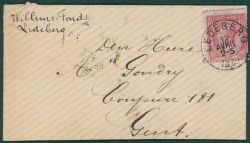 Willems-Fonds
Ledeberg
LEDEBERG
AVRIL
2-5
Den Heere
Gondry
Coupure 181
Gent.